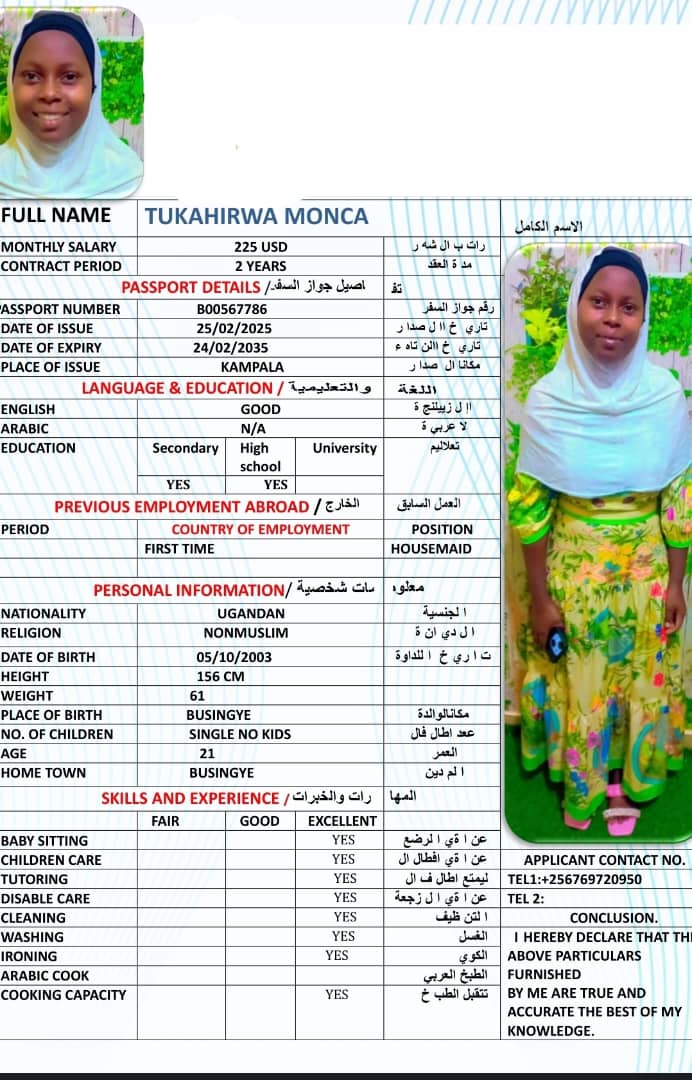 FULL NAME TUKAHIRWA MONCA الاسم الكامل
MONTHLY SALARY 225 USD رات ب ال شه ر
CONTRACT PERIOD 2 YEARS مد ة العقد
PASSPORT DETAILS / اصيل جواز السفر تف
PASSPORT NUMBER B00567786 رقم جواز السفر
DATE OF ISSUE 25/02/2025 تاري خ ا ل صدا ر
DATE OF EXPIRY 24/02/2035 تاري خ االن تاه ء
PLACE OF ISSUE KAMPALA مكانا ال صدا ر
LANGUAGE & EDUCATION / والتعليمية اللغة
ENGLISH GOOD
ARABIC N/A لا عربي ة
EDUCATION Secondary High school University تعلاليم
YES YES
PREVIOUS EMPLOYMENT ABROAD / الخارج العمل السابق
PERIOD COUNTRY OF EMPLOYMENT POSITION
FIRST TIME HOUSEMAID
PERSONAL INFORMATION/ مات شخصية معلوه
NATIONALITY UGANDAN ا لجنسية
RELIGION NONMUSLIM ا ل دي ان ة
DATE OF BIRTH 05/10/2003
HEIGHT 156 CM
WEIGHT 61
PLACE OF BIRTH BUSINGYE مكانالوالدة
NO. OF CHILDREN SINGLE NO KIDS عدد اطال فال
AGE 21 العمر
HOME TOWN BUSINGYE ا لم دين
SKILLS AND EXPERIENCE / رات والخبرات المها
FAIR GOOD EXCELLENT
BABY SITTING YES عن ا قي ا لرضع
CHILDREN CARE YES عن ا قي افطال ال
TUTORING YES ليمتع اطال ف ال
DISABLE CARE YES عن ا قي ا ل زجعة
CLEANING YES ا لتن ظيف
WASHING YES الغسل
IRONING YES الكوي
ARABIC COOK الطبخ العربي
COOKING CAPACITY YES تتقبل الطب خ
APPLICANT CONTACT NO.
TEL1:+256769720950
TEL 2:
CONCLUSION.
I HEREBY DECLARE THAT THE
ABOVE PARTICULARS
FURNISHED
BY ME ARE TRUE AND
ACCURATE THE BEST OF MY
KNOWLEDGE.